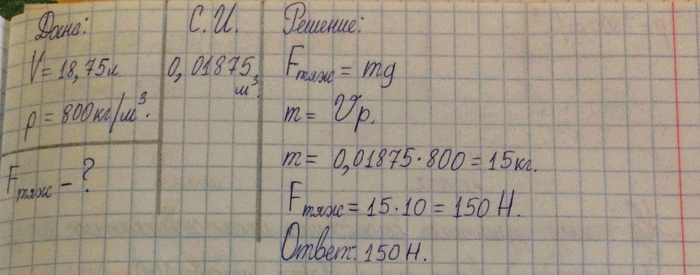 Дано:
V = 18,75л
ρ = 800кг/м³.
Fтяж - ?
С. И.
0,01875
м³.
Решение:
Fтяж = mg
m = Vρ.
m = 0,01875·800 = 15кг.
Fтяж = 15·10 = 150 Н.
Ответ: 150 Н.